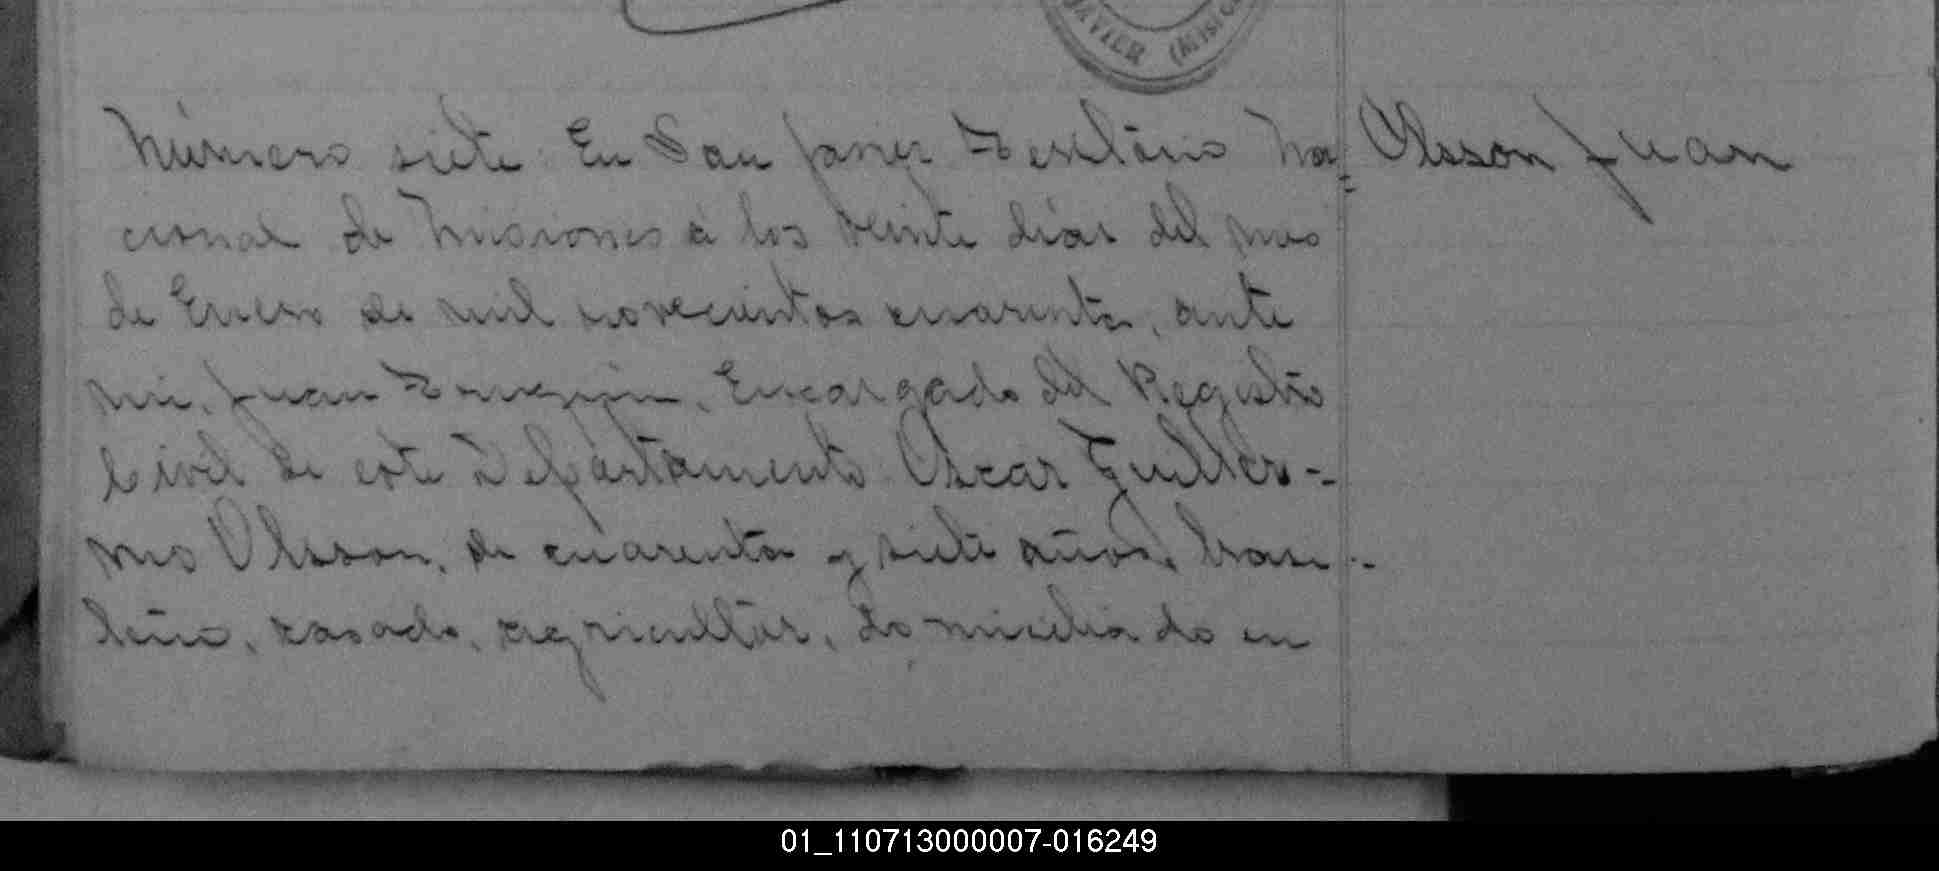 JAVIER (MISIO
Número siete. En San Javier Territorio Na=
Olsson Juan
cional de Misiones á los veinte dias del mes
de Enero de mil novecientos cuarenta, ante
mi, Juan Encargado del Registro
Civil de este Departamento. Oscar Guiller-
mo Olsson, de cuarenta y siete años, brasi-
leño, casado, agricultor, domiciliado en
01_110713000007-016249